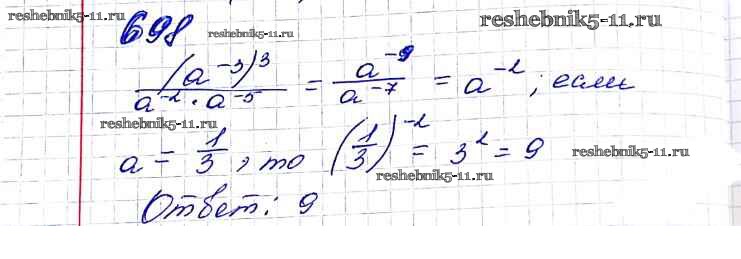 698 reshebnik5-11.ru reshebnik5-11.ru
(a⁻³)³ / (a⁻² · a⁻⁵) = a⁻⁹ / a⁻⁷ = a⁻² ; если
reshebnik5-11.ru
a = 1/3 , то (1/3)⁻² = 3² = 9 reshebnik5-11.ru
reshebnik5-11.ru
Ответ: 9